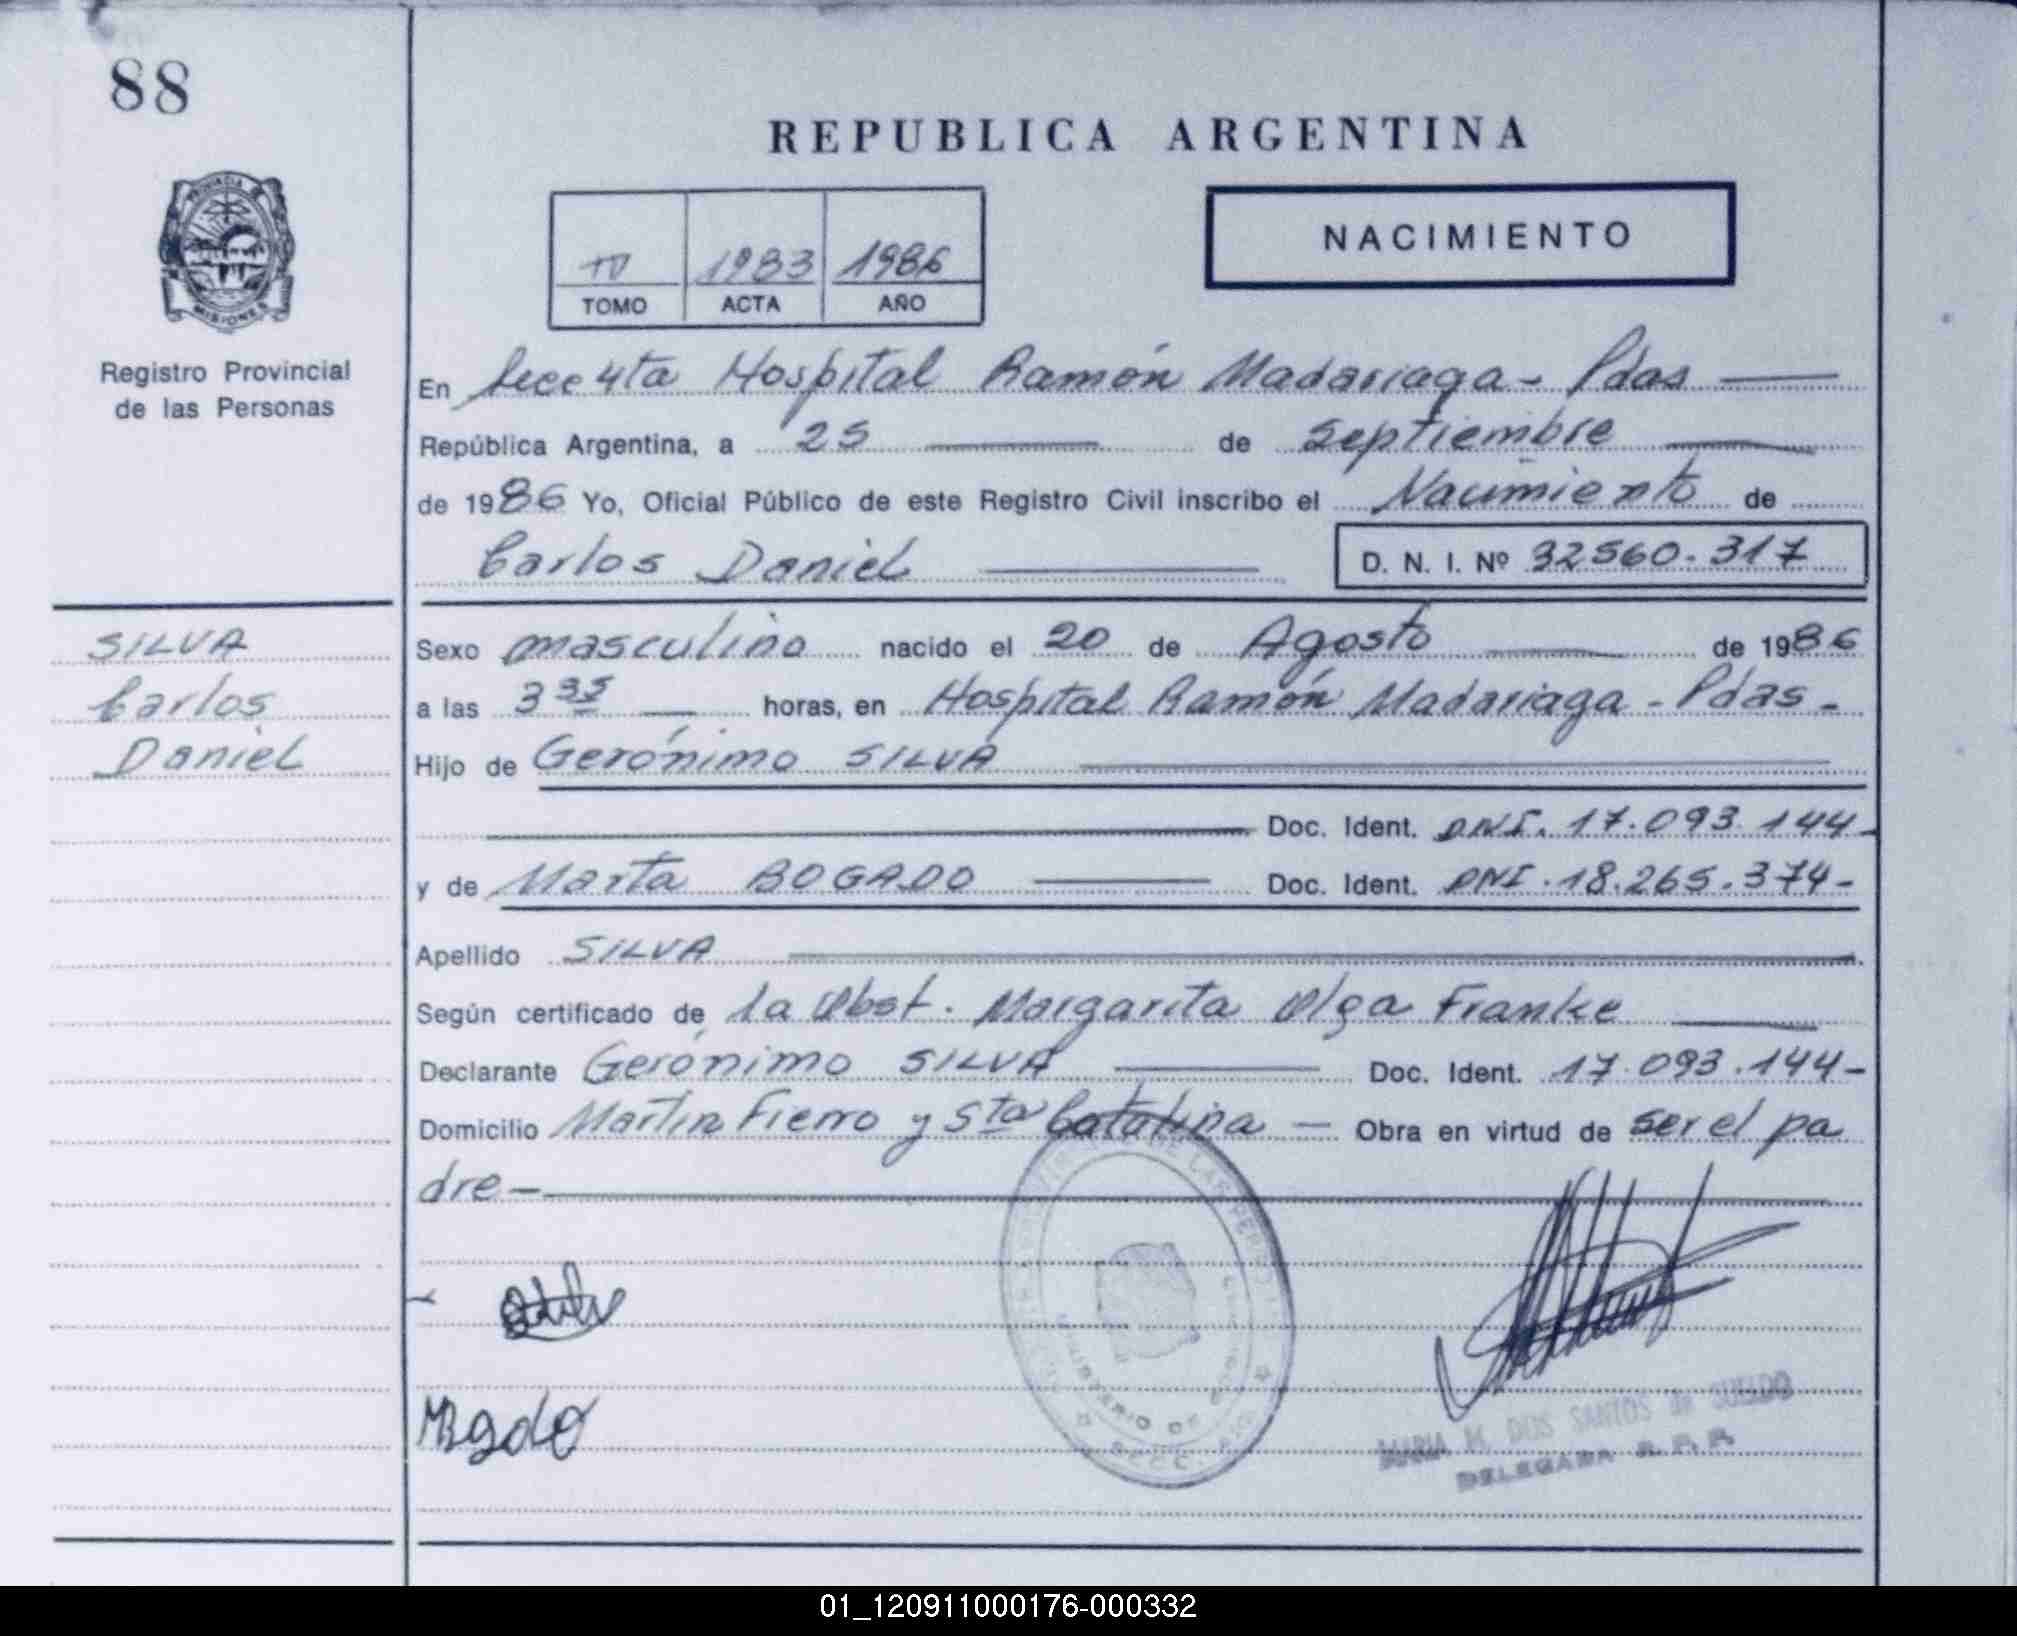 88
REPUBLICA ARGENTINA
NACIMIENTO
1983 1986
TOMO ACTA AÑO
PROVINCIA DE
MISIONES
Registro Provincial
de las Personas
En Secc 4ta Hospital Ramón Madariaga - Pdas
República Argentina, a 25 de Septiembre
de 1986 Yo, Oficial Público de este Registro Civil inscribo el Nacimiento de
Carlos Daniel D. N. I. Nº 32560.317
SILVA
Carlos
Daniel
Sexo masculino nacido el 20 de Agosto de 1986
a las 3 35 horas, en Hospital Ramón Madariaga - Pdas -
Hijo de Gerónimo SILVA
Doc. Ident. DNI. 17.093.144-
y de Marta BOGADO Doc. Ident. DNI. 18.265.374-
Apellido SILVA
Según certificado de la Obst. Margarita Olga Franke
Declarante Gerónimo SILVA Doc. Ident. 17.093.144-
Domicilio Martin Fierro y Sta Catalina - Obra en virtud de ser el pa
dre -
MINISTERIO DE
MARIA DOS SANTOS de SUELDO
DELEGADA R. P. P.
01_120911000176-000332